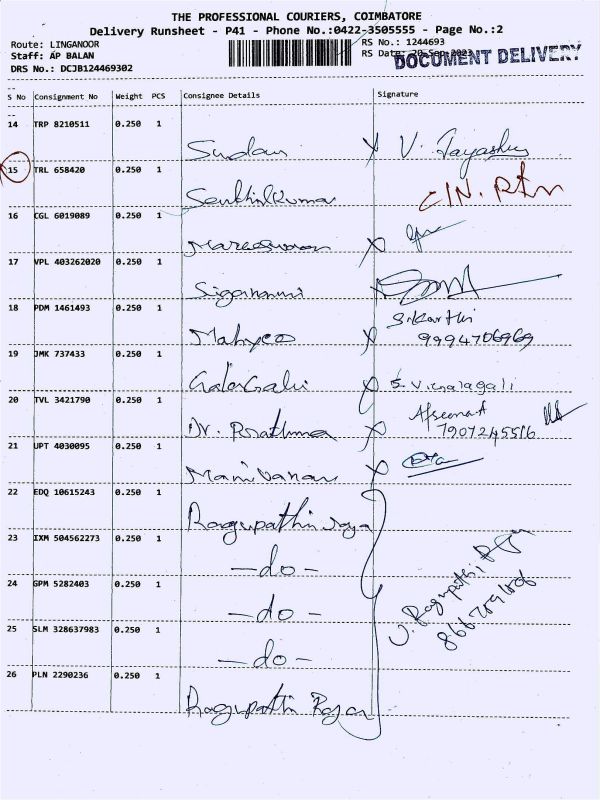 THE PROFESSIONAL COURIERS, COIMBATORE
Delivery Runsheet - P41 - Phone No.:0422-3505555 - Page No.:2
Route: LINGANOOR
Staff: AP BALAN
DRS No.: DCJB124469302
RS No.: 1244693
RS Date: 20-Sep-2023
DOCUMENT DELIVERY
S No Consignment No Weight PCS Consignee Details Signature
14 TRP 8210511 0.250 1
15 TRL 658420 0.250 1
Senthilkumar
16 CGL 6019089 0.250 1
Mareeswaran
17 VPL 403262020 0.250 1
18 PDM 1461493 0.250 1
Mahyco 9994706969
19 JMK 737433 0.250 1
20 TVL 3421790 0.250 1
Dr. Prathima 7907245516
21 UPT 4030095 0.250 1
Manivanan
22 EDQ 10615243 0.250 1
Ragupathi
23 IXM 504562273 0.250 1
-do-
24 GPM 5282403 0.250 1
-do-
25 SLM 328637983 0.250 1
-do-
26 PLN 2290236 0.250 1
Ragupathi Rajan